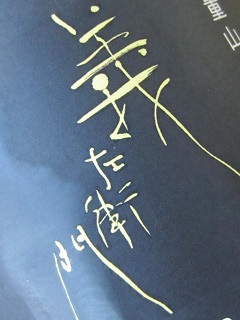 義左衛門